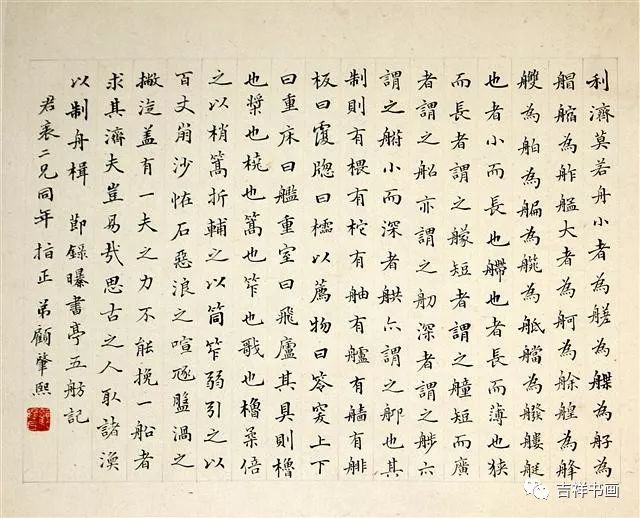 利濟莫若舟小者為艖為艓為艀為
艒為舴艋大者為舸為艅艎為
艭為舶為艑為為艡為艇
也者小而長也艜也者長而薄也狹
而長者謂之艨短者謂之艟短而廣
者謂之亦謂之舠深者謂之六
謂之小而深者六謂之也其
制則有椳有柁有舳有艫有艢有
板曰覆曰以薦物曰笭窔上下
曰重床曰艦重室曰飛廬其具則櫓
也槳也橈也篙也笮也也櫓倍
之以梢篙折輔之以筒笮弱引之以
百丈崩沙恠石惡浪之喧豗渦之
撇盖有一夫之力不能挽一船者
求其濟夫豈易哉思古之人取諸渙
以制舟楫 節錄曝書亭五舫記
君衮二兄同年指正 弟顧肇熙
吉祥书画